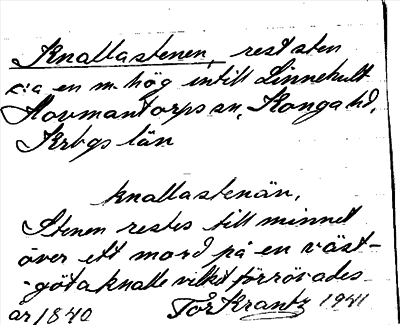 Knallastenen, rest sten
c:a en m. hög intill Linnehult
Hovmantorps sn, Konga hd,
Krbgs län
Knallastenän,
Stenen restes till minnet
över ett mord på en väst-
-götaknalle vilket förövades
år 1840 Tor Krantz 1941